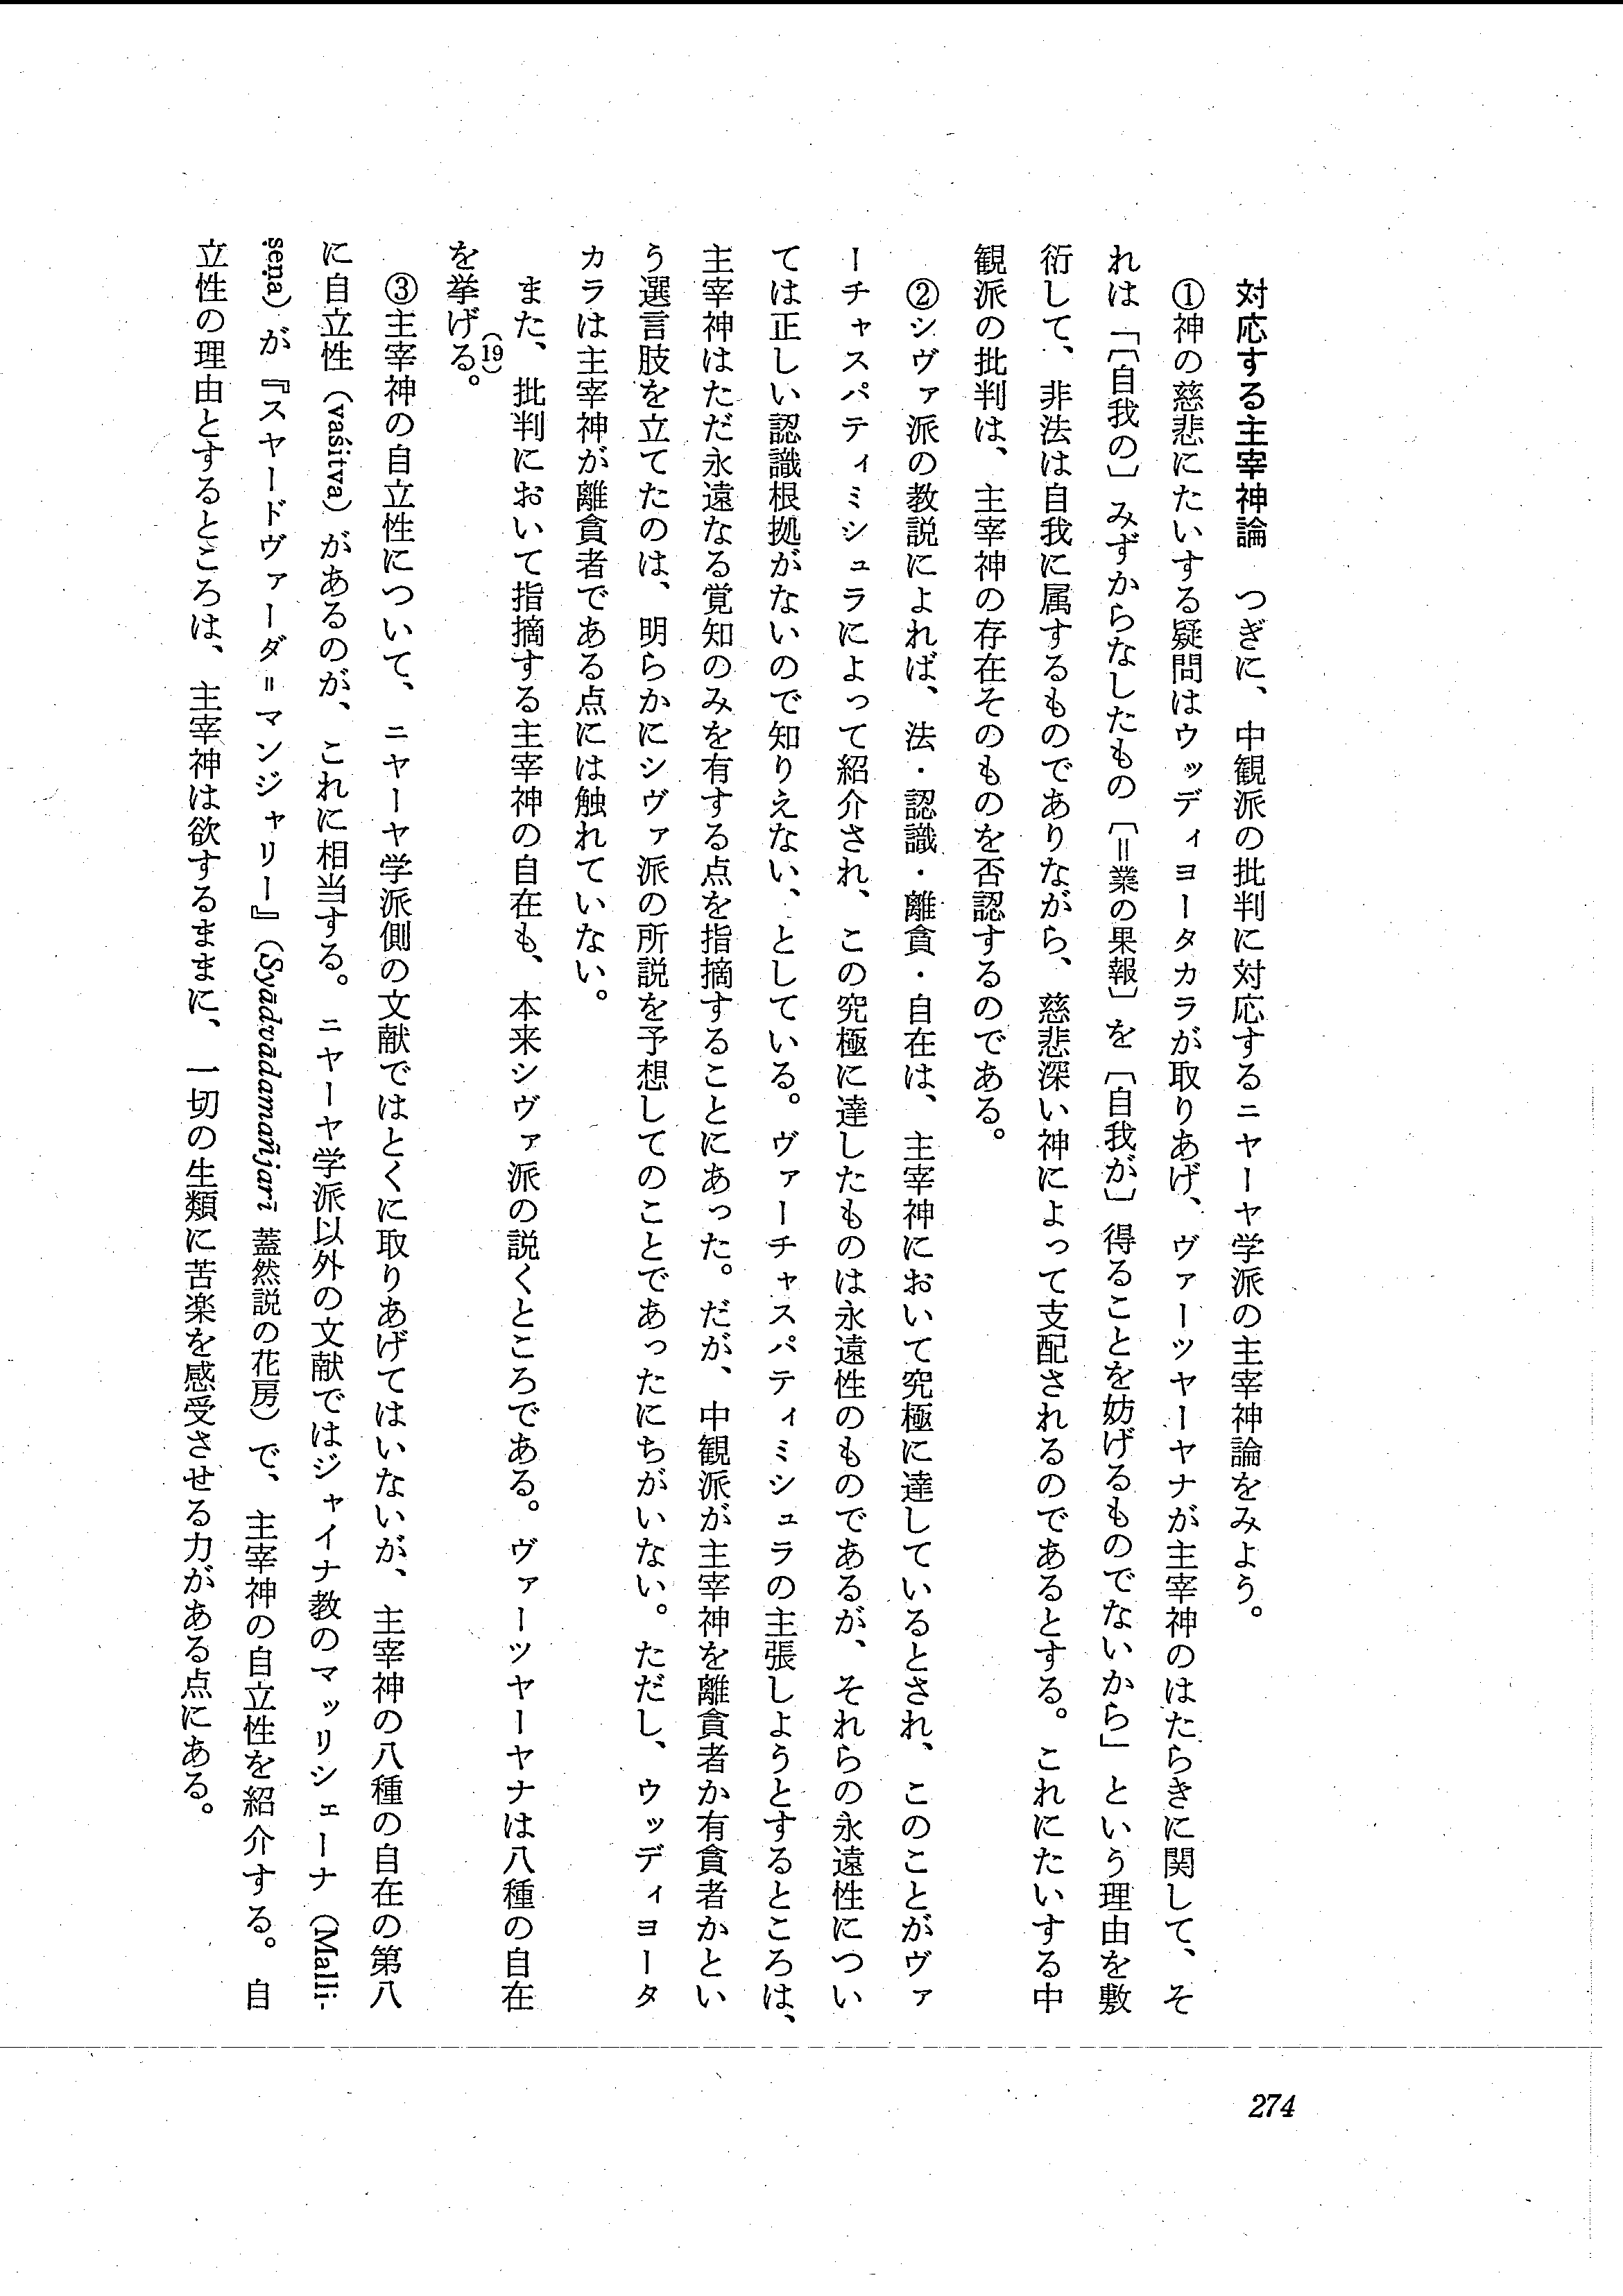 対応する主宰神論　つぎに、中観派の批判に対応するニヤーヤ学派の主宰神論をみよう。
①神の慈悲にたいする疑問はウッディヨータカラが取りあげ、ヴァーツヤーヤナが主宰神のはたらきに関して、そ
れは「〔自我の〕みずからなしたもの〔＝業の果報〕を〔自我が〕得ることを妨げるものでないから」という理由を敷
衍して、非法は自我に属するものでありながら、慈悲深い神によって支配されるのであるとする。これにたいする中
観派の批判は、主宰神の存在そのものを否認するのである。
②シヴァ派の教説によれば、法・認識・離貪・自在は、主宰神において究極に達しているとされ、このことがヴァ
ーチャスパティミシュラによって紹介され、この究極に達したものは永遠性のものであるが、それらの永遠性につい
ては正しい認識根拠がないので知りえない、としている。ヴァーチャスパティミシュラの主張しようとするところは、
主宰神はただ永遠なる覚知のみを有する点を指摘することにあった。だが、中観派が主宰神を離貪者か有貪者かとい
う選言肢を立てたのは、明らかにシヴァ派の所説を予想してのことであったにちがいない。ただし、ウッディヨータ
カラは主宰神が離貪者である点には触れていない。
また、批判において指摘する主宰神の自在も、本来シヴァ派の説くところである。ヴァーツヤーヤナは八種の自在
を挙げる。(19)
③主宰神の自立性について、ニヤーヤ学派側の文献ではとくに取りあげてはいないが、主宰神の八種の自在の第八
に自立性（vaśitva）があるのが、これに相当する。ニヤーヤ学派以外の文献ではジャイナ教のマッリシェーナ（Malli-
ṣeṇa）が『スヤードヴァーダ＝マンジャリー』（Syādvādamañjarī 蓋然説の花房）で、主宰神の自立性を紹介する。自
立性の理由とするところは、主宰神は欲するままに、一切の生類に苦楽を感受させる力がある点にある。
274